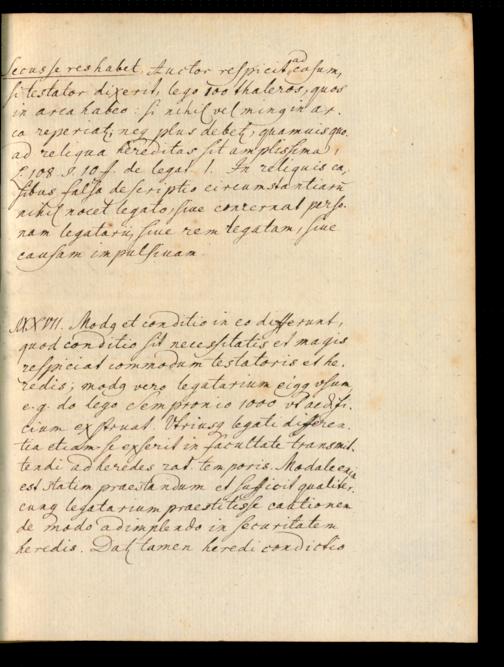 Secus se res habet. Auctor respicit ad casum,
si testator dixerit, lego 100 thaleros, quos
in arca habeo: si nihil vel min9 in ar-
ca reperiat, neq plus debet, quamvis quo-
ad reliqua hereditas sit amplissima,
L. 108. §. 10 f. de legat. 1. In reliquis ca-
sibus falsa descriptio circumstantiarū
nihil nocet legato, sive concernat perso-
nam legatarii, sive rem legatam, sive
causam impulsivam.
XXXVII. Mod9 et conditio in eo differunt,
quod conditio sit necessitatis et magis
respiciat commodum testatoris et he-
redis; mod9 vero legatarium eiq9 usum,
e.g. do lego Sempronio 1000 ut aedifi-
cium exstruat. Utriusq legati differen-
tia etiam se exserit in facultate transmit-
tendi ad heredes rat. temporis. Modale enim
est statim praestandum et sufficit qualiter-
cunq legatarium praestitisse cautionem
de modo adimplendo in securitatem
heredis. Dat tamen heredi condictio